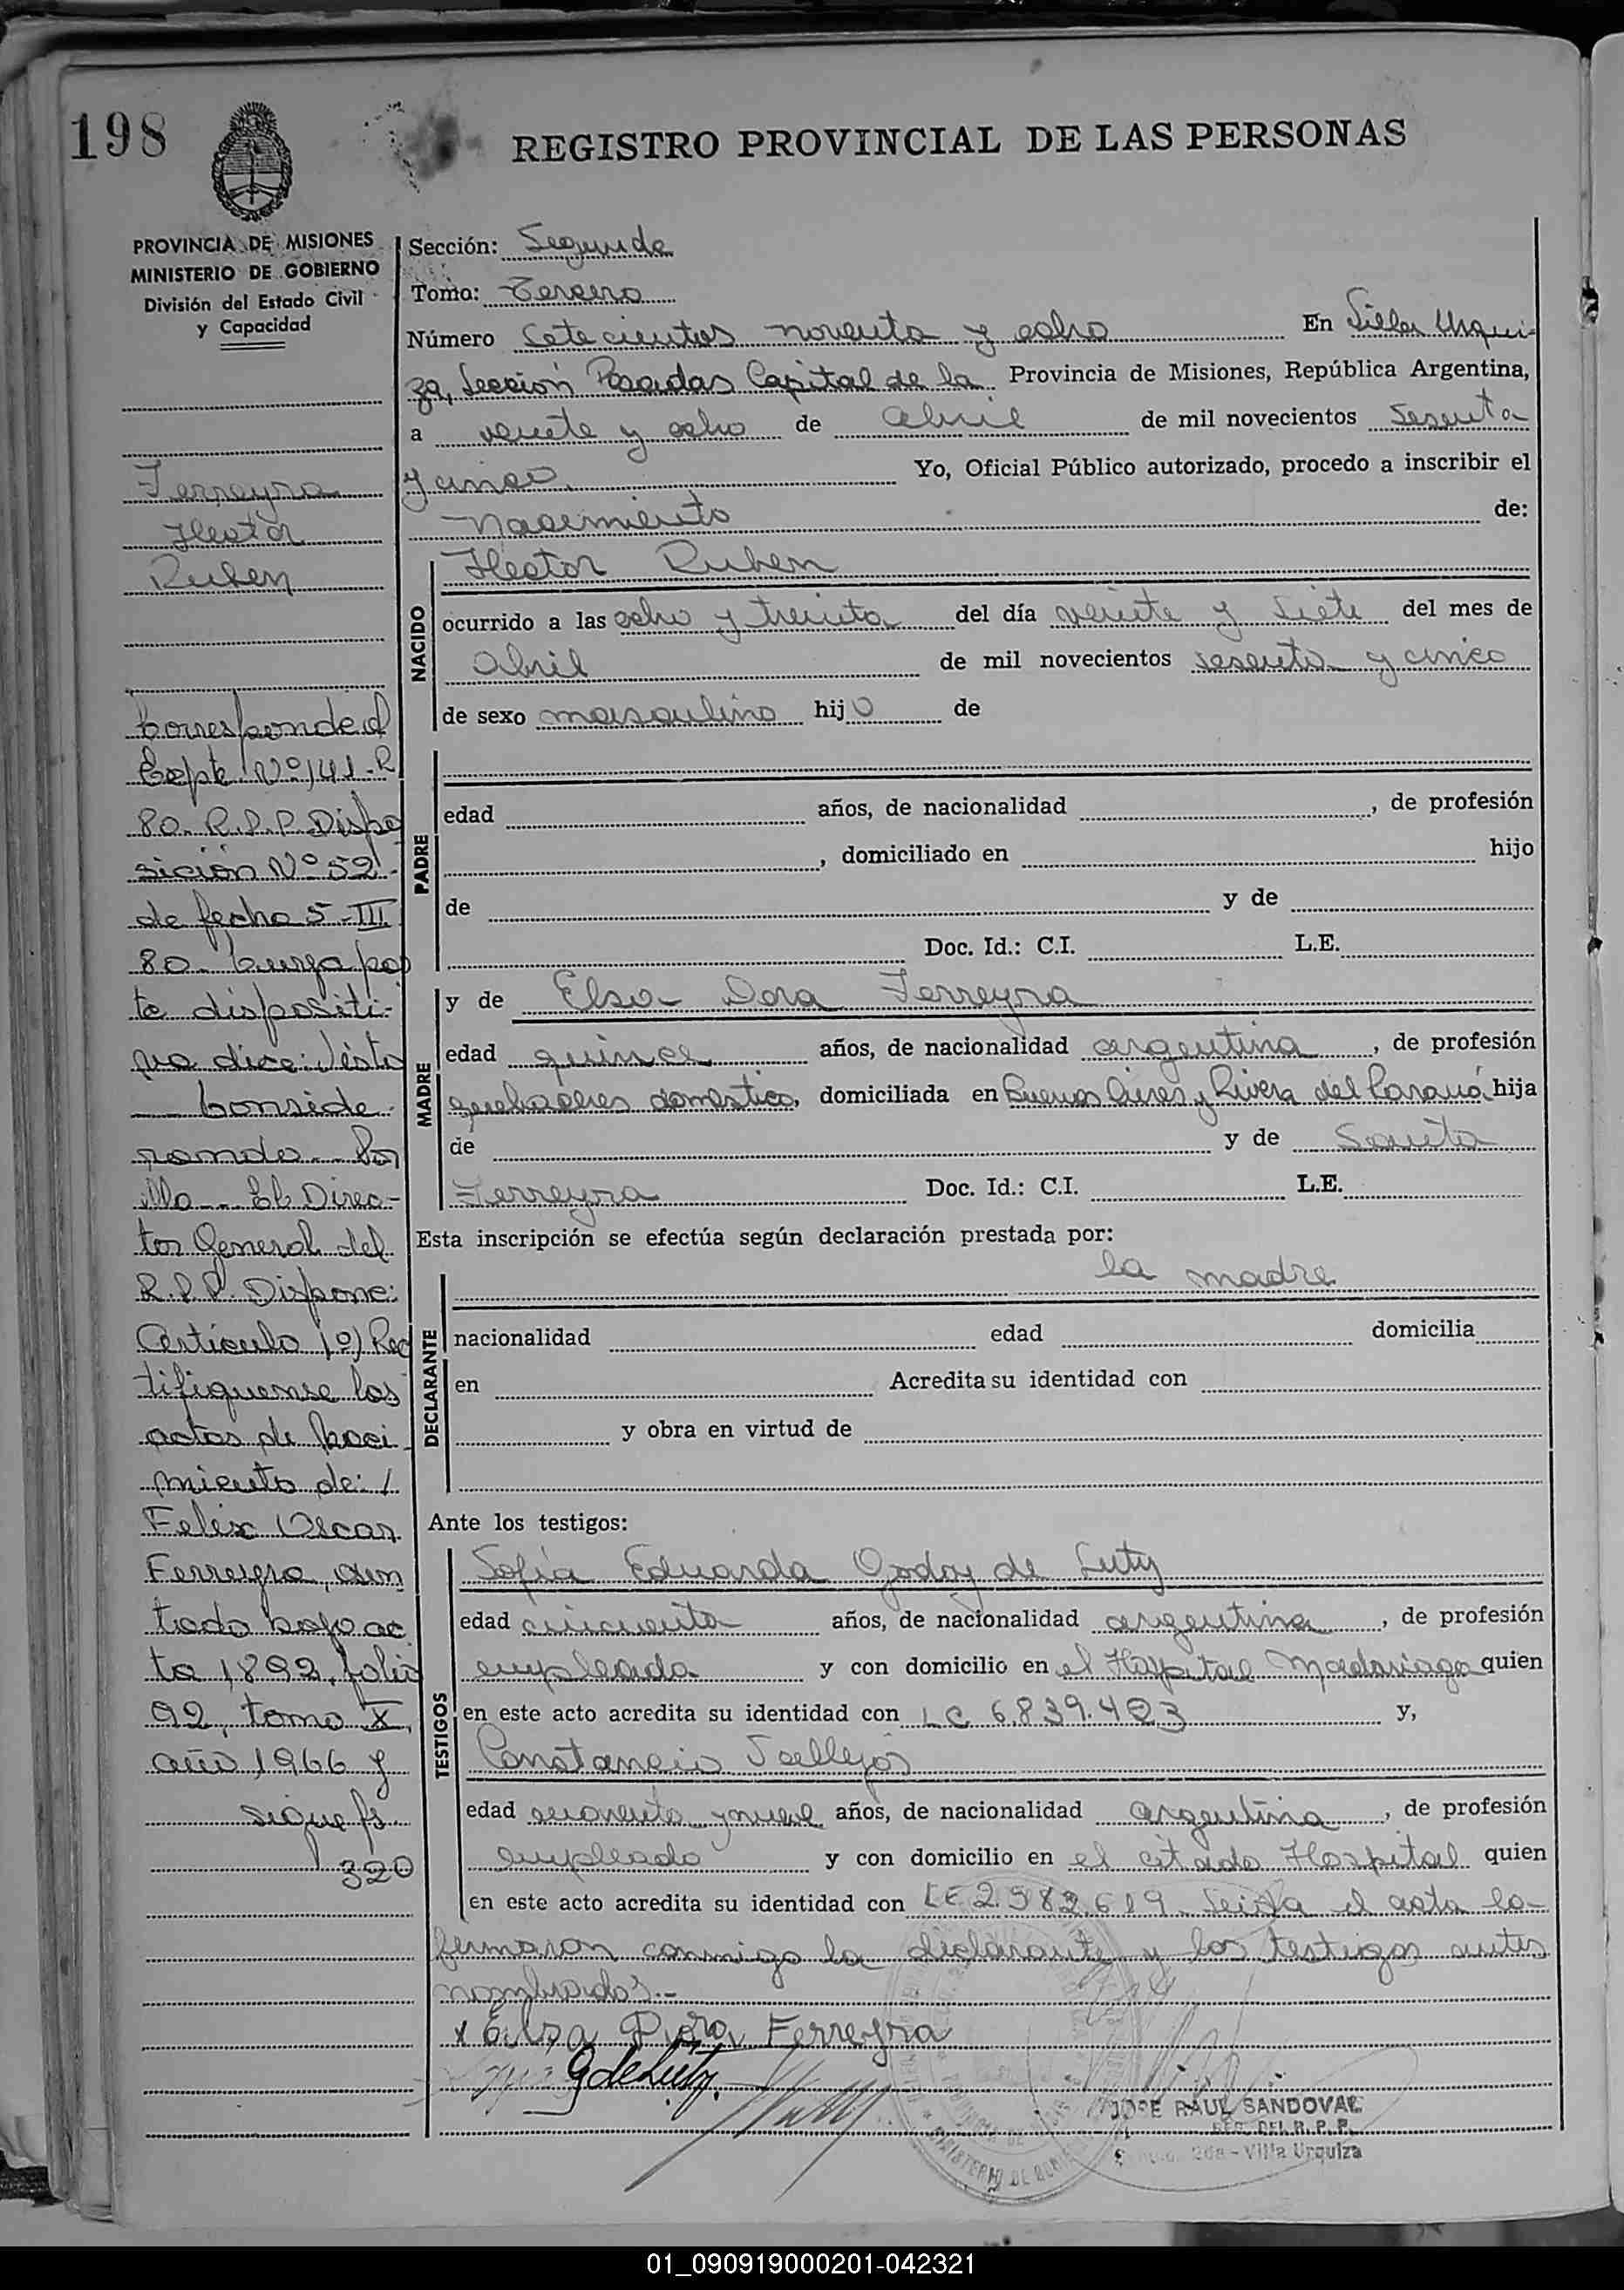 198
REGISTRO PROVINCIAL DE LAS PERSONAS
PROVINCIA DE MISIONES
MINISTERIO DE GOBIERNO
División del Estado Civil
y Capacidad
Ferreyra
Hector
Ruben
Corresponde al
Expte. Nº 141-R
80. R.P.P. Dispo
sición Nº 52-
de fecha 5-III
80- Cuya par
te dispositi-
va dice: Visto
Conside
rando Por
ello El Direc-
tor General del
R.P.P. Dispone:
Artículo 1º) Rec
tifiquense las
actas de Naci
miento de: /
Felix Oscar
Ferreyra, asen
tado bajo ac
ta 1892, folio
92, tomo X,
año 1966 y
sigue fs.
320
Sección: Segunda
Tomo: Tercero
Número Setecientos noventa y ocho En Villa Urqui-
za, Sección Posadas Capital de la Provincia de Misiones, República Argentina,
a veinte y ocho de abril de mil novecientos sesenta
y cinco. Yo, Oficial Público autorizado, procedo a inscribir el
nacimiento de:
NACIDO
Hector Ruben
ocurrido a las ocho y treinta del día veinte y siete del mes de
abril de mil novecientos sesenta y cinco
de sexo masculino hijo de
PADRE
edad años, de nacionalidad , de profesión
, domiciliado en hijo
de y de
Doc. Id.: C.I. L.E.
MADRE
y de Elsa Dora Ferreyra
edad quince años, de nacionalidad argentina , de profesión
quehaceres domestico, domiciliada en Buenos Aires y Rivera del Paraná hija
de y de Santa
Ferreyra Doc. Id.: C.I. L.E.
Esta inscripción se efectúa según declaración prestada por:
la madre
DECLARANTE
nacionalidad edad domicilia
en Acredita su identidad con
y obra en virtud de
Ante los testigos:
TESTIGOS
Sofía Eduarda Godoy de Luty
edad cincuenta años, de nacionalidad argentina , de profesión
empleada y con domicilio en el Hospital Madariaga quien
en este acto acredita su identidad con LC 6.839.403 y,
Constancio Vallejos
edad cuarenta y nueve años, de nacionalidad argentina , de profesión
empleado y con domicilio en el citado Hospital quien
en este acto acredita su identidad con LE 2.582.619 Leida el acta la
firmaron conmigo la declarante y los testigos antes
nombrados.-
x Elsa Dora Ferreyra
G de Luty.
JOSE RAUL SANDOVAL
DEL R. P. P.
2da - Villa Urquiza
01_090919000201-042321